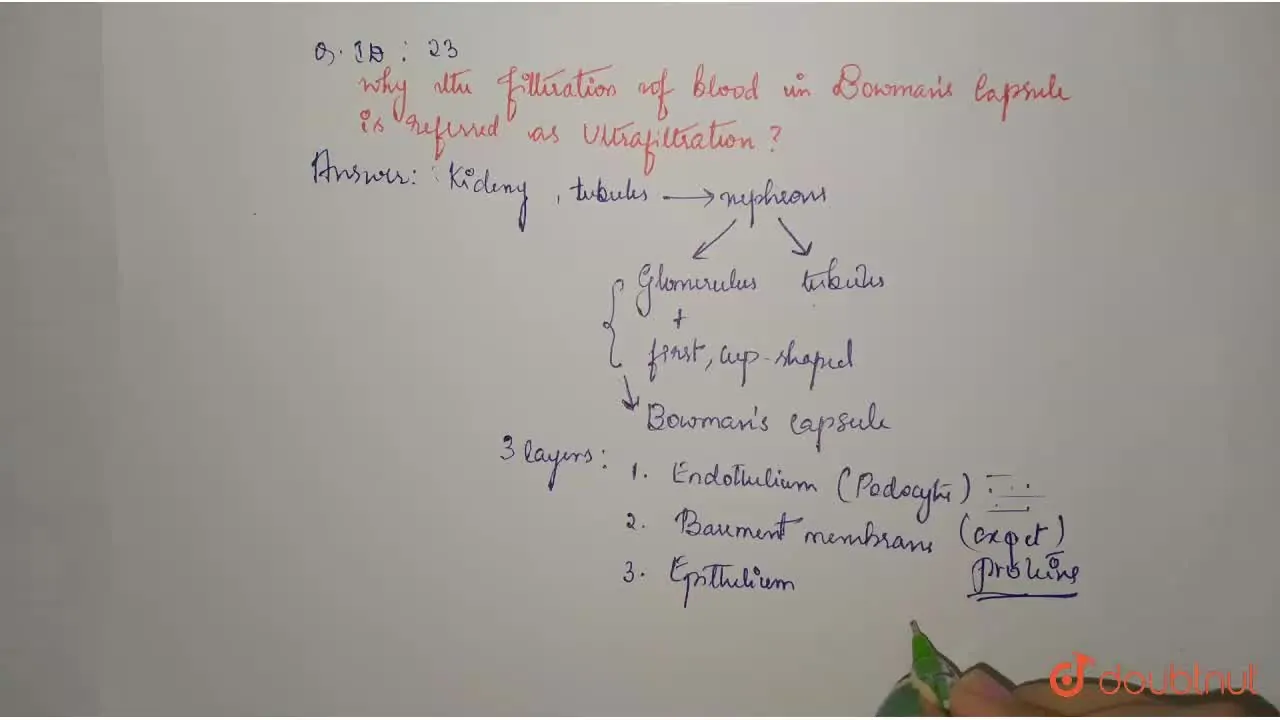 Q. ID : 23
Why the filtration of blood in Bowman's Capsule
is referred as Ultrafiltration ?
Answer: Kideny , tubules → nephrons
Glomerulus tubules
+
first, cup-shaped
Bowman's capsule
3 layers:
1. Endothelium (Podocyte)
2. Basement membrane (except)
proteins
3. Epithelium
doubtnut